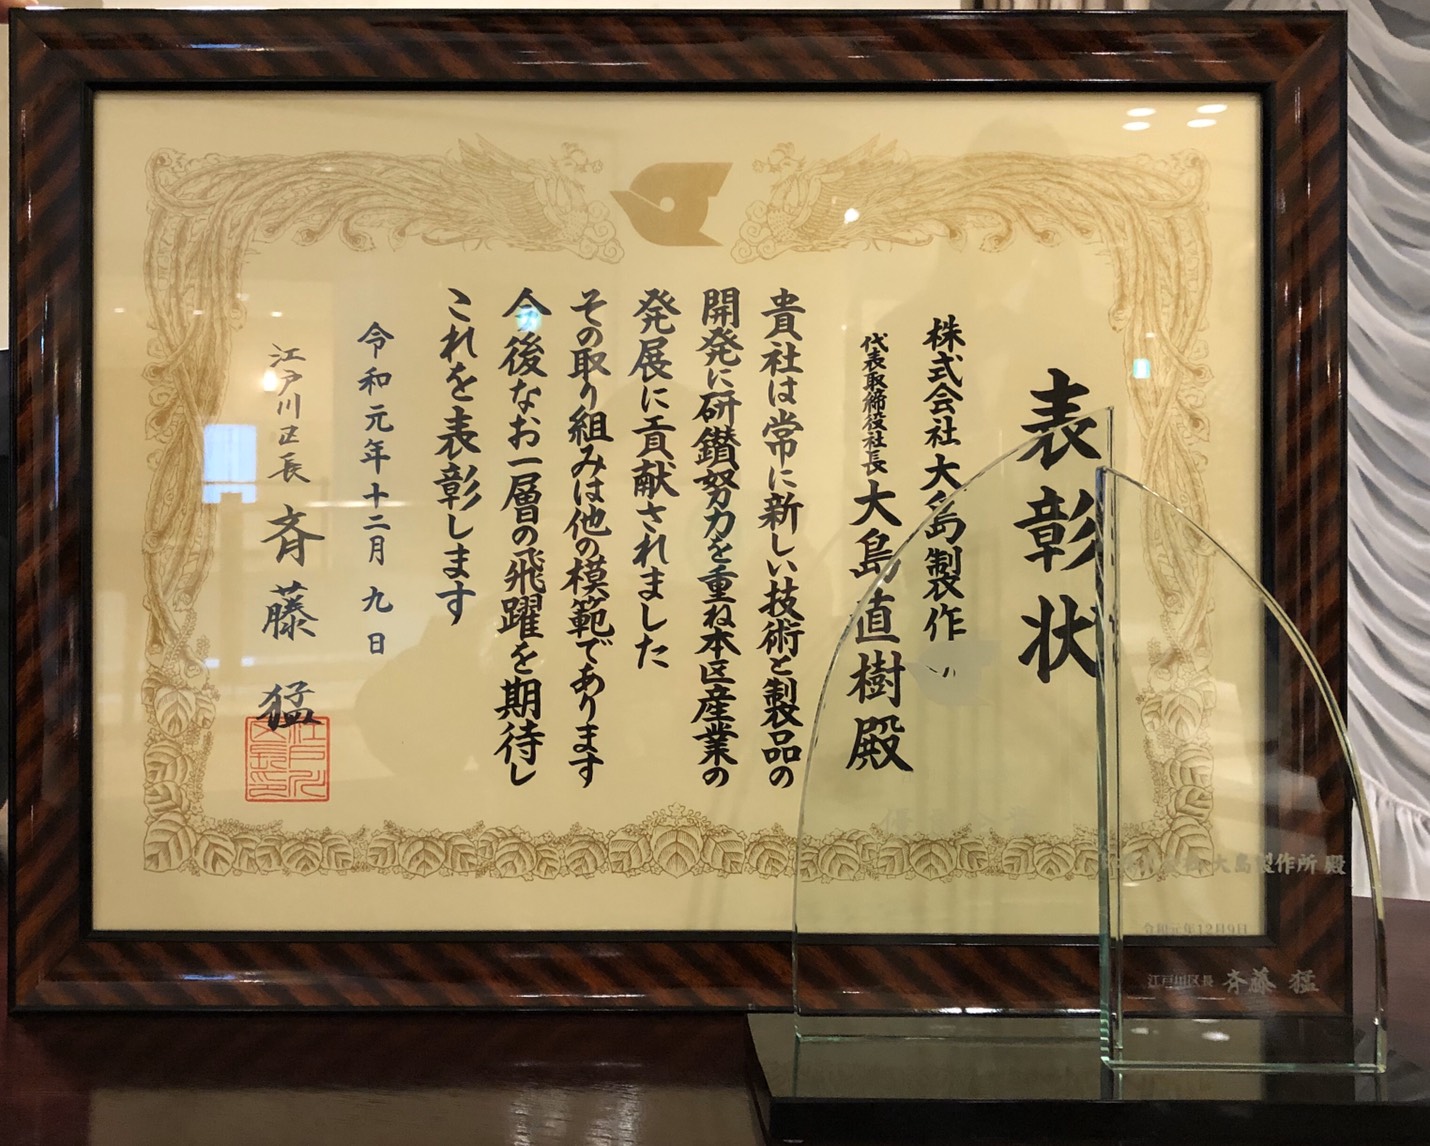 表彰状
株式会社大島製作
代表取締役社長 大島直樹殿
貴社は常に新しい技術と製品の
開発に研鑚努力を重ね本区産業の
発展に貢献されました
その取り組みは他の模範であります
今後なお一層の飛躍を期待し
これを表彰します
令和元年十二月九日
江戸川区長 斉藤猛
大島製作所 殿
令和元年12月9日
江戸川区長 斉藤 猛